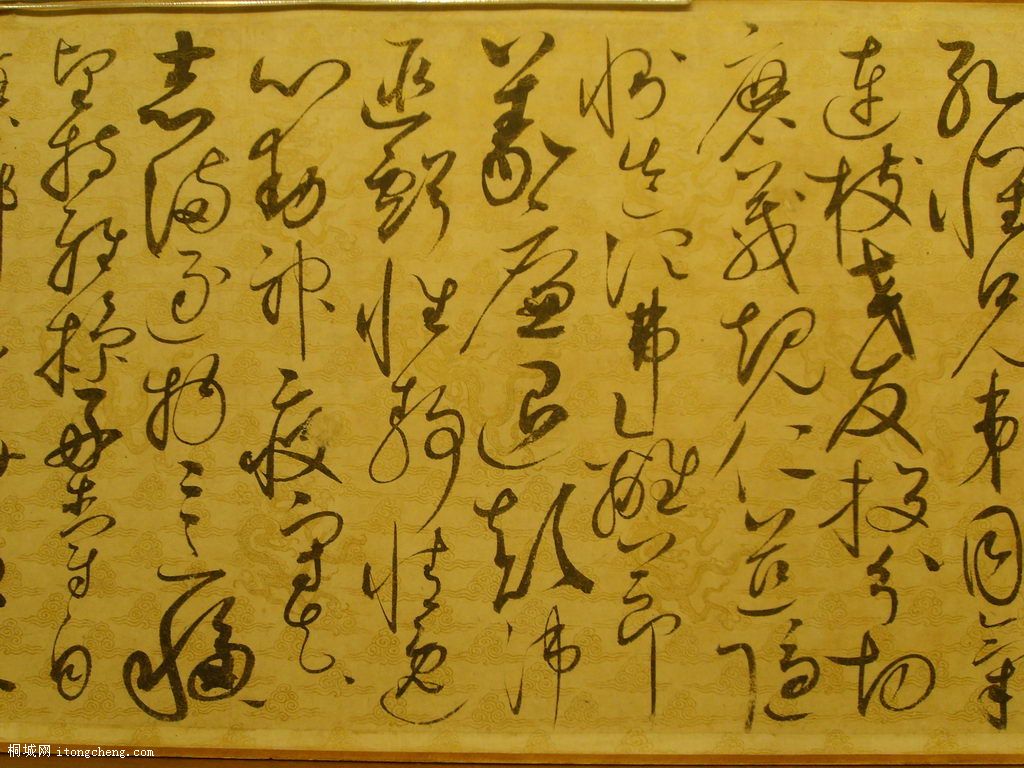 孔懷兄弟同氣
連枝交友投分切
磨箴規仁慈隱
惻造次弗離節
義廉退顛沛
匪虧性靜情逸
心動神疲守真
志滿逐物意移
堅持雅操好爵自
桐城网 itongcheng.com